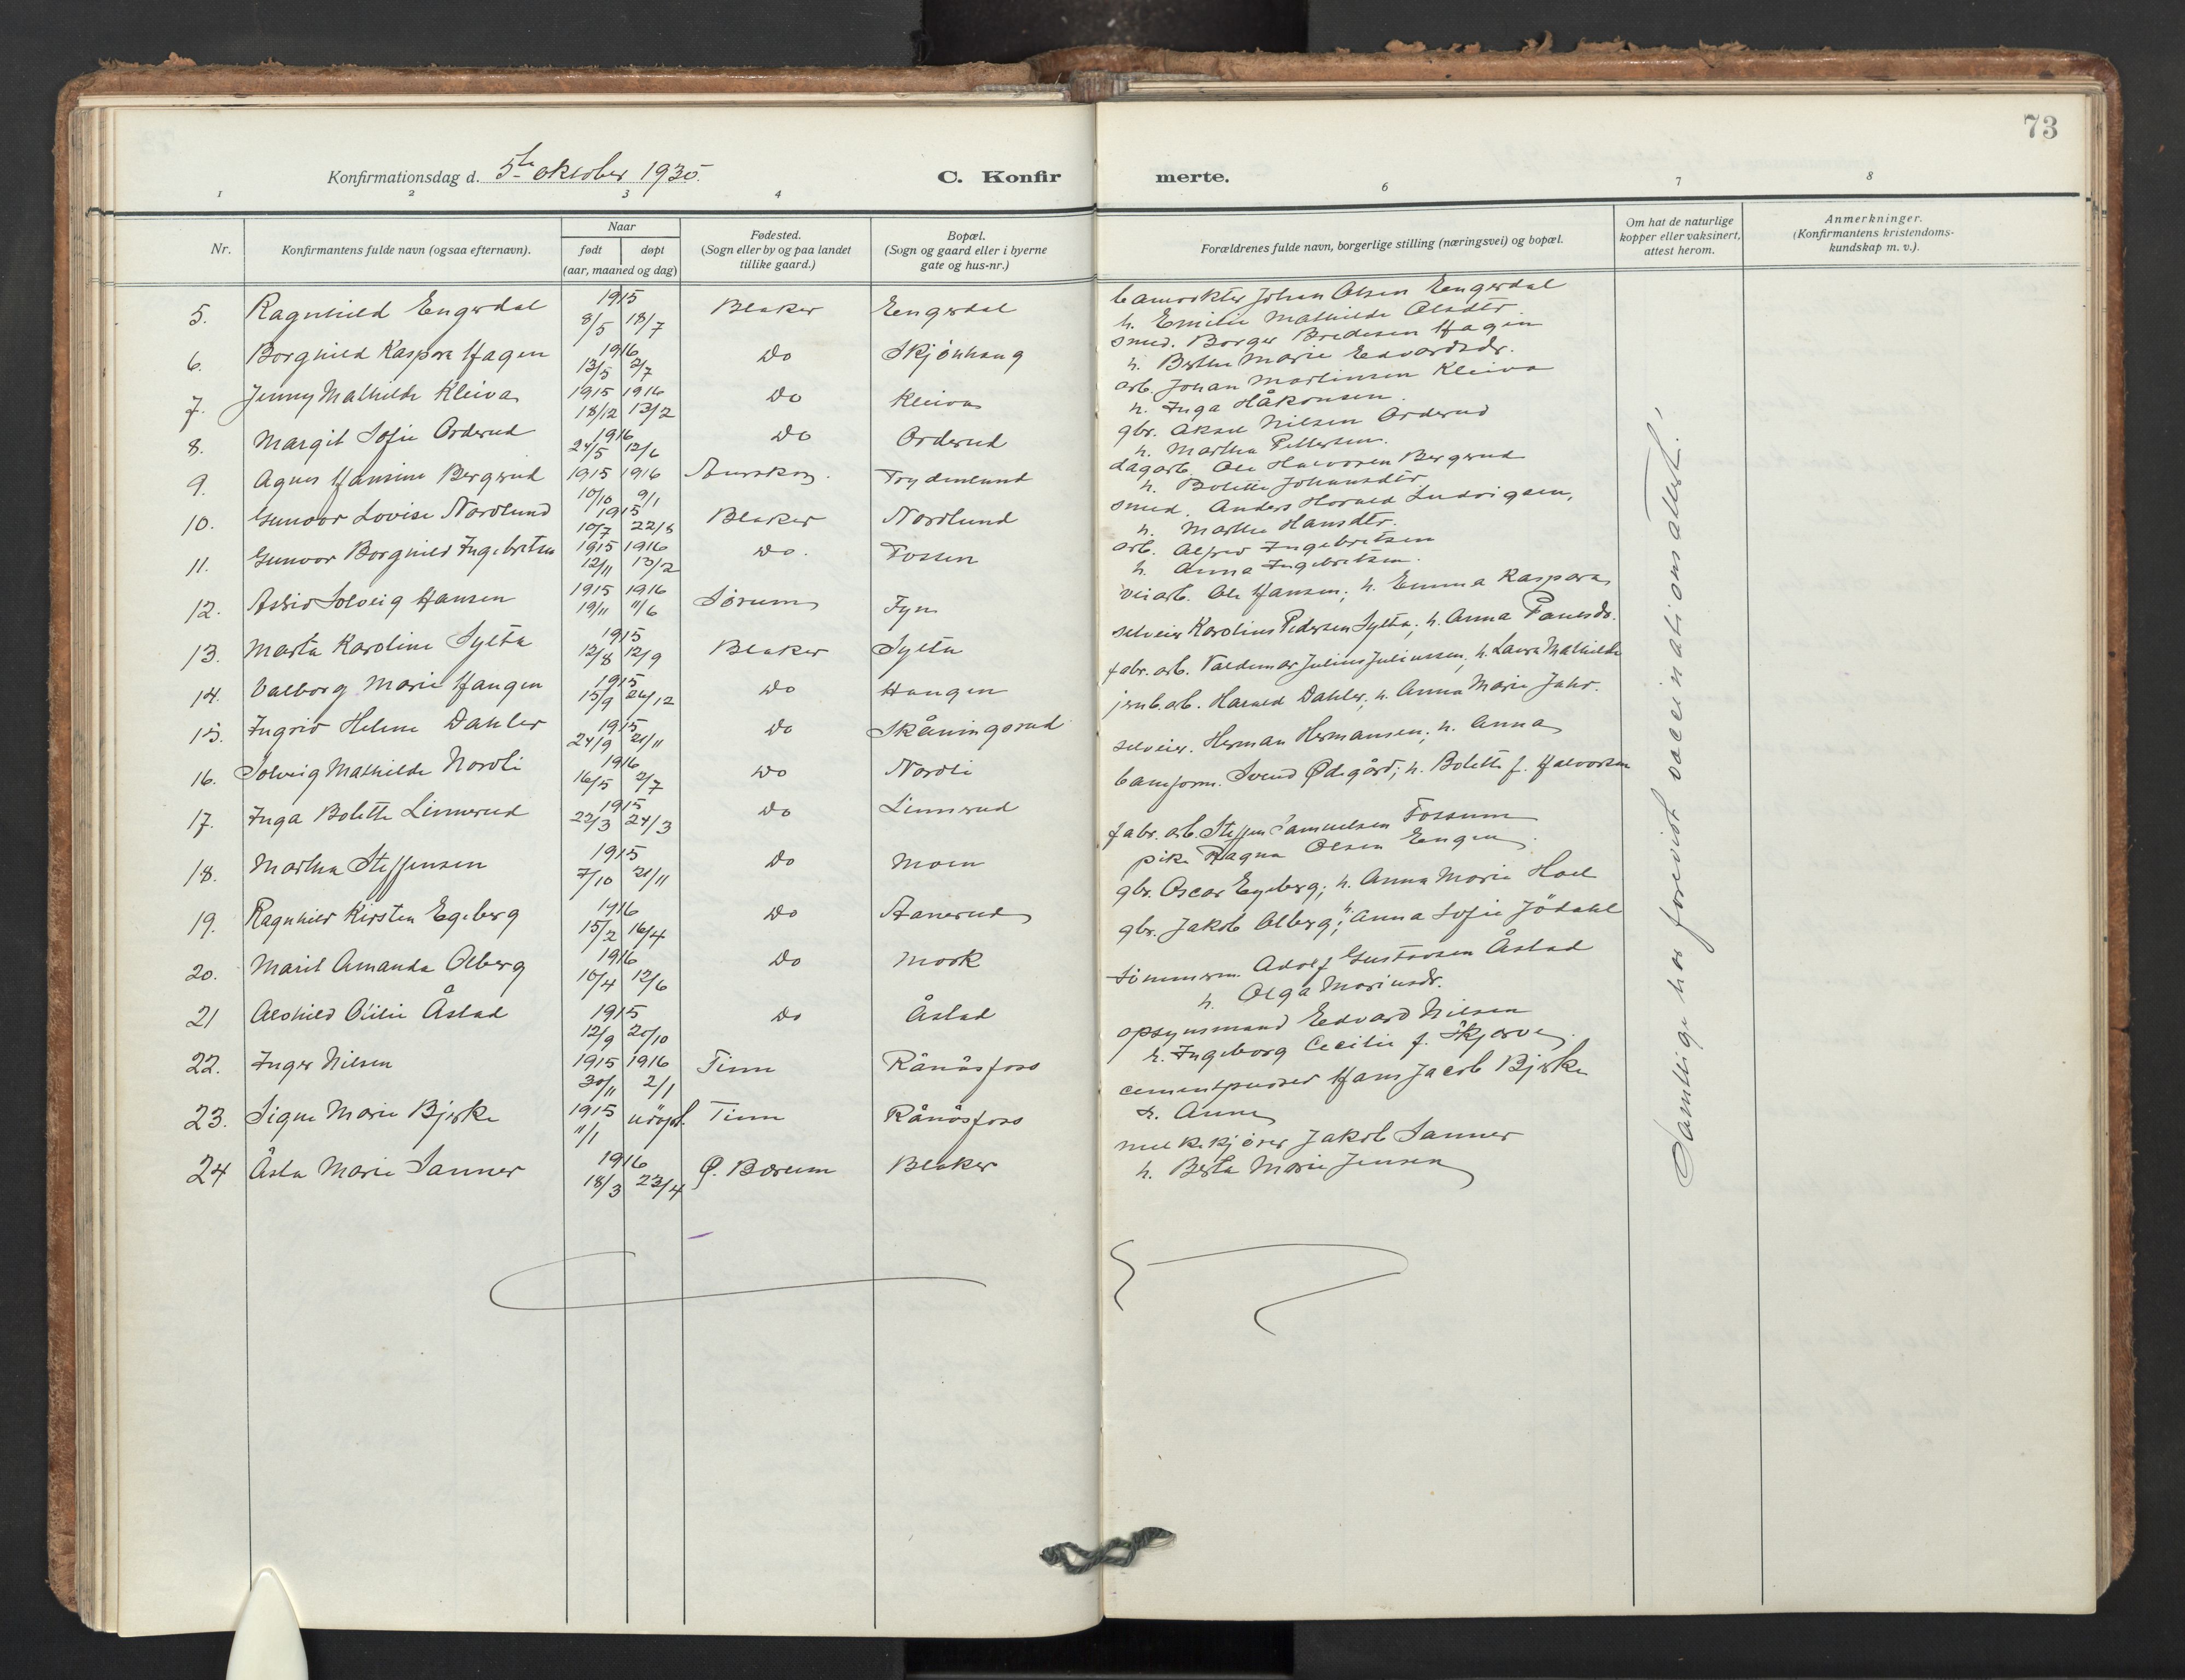 73
Konfirmationsdag d. 5te oktober 1930.
C. Konfirmerte.
1 2 3 4 6 7 8
Nr. Konfirmantens fulde navn (ogsaa efternavn). Naar født døpt (aar, maaned og dag) Fødested. (Sogn eller by og paa landet tillike gaard.) Bopæl. (Sogn og gaard eller i byerne gate og hus-nr.) Forældrenes fulde navn, borgerlige stilling (næringsvei) og bopæl. Om hat de naturlige kopper eller vaksinert, attest herom. Anmerkninger. (Konfirmantens kristendoms-kundskap m. v.).
5. Ragnhild Engerdal 1915 8/5 18/7 Blaker Engerdal Johan Olsen Engerdal
h. Emilie Mathilde Olsdtr.
6. Borghild Kaspara Hagen 1916 13/5 2/7 Do Skjønhaug smed. Borger Bredesen Hagen
h. Berthe Marie Edvardsdr.
7. Jenny Mathilde Kleiva 1915 18/12 1916 13/2 Do Kleiva arb. Johan Martinsen Kleiva
h. Inga Håkonsen.
8. Margit Sofie Orderud 1916 24/5 12/6 Do Orderud gbr. Aksel Nilsen Orderud
h. Martha Pettersen.
9. Agnes Hansine Bergerud 1915 10/10 1916 9/1 Aurskog. Frydenlund dagarb. Ole Halvorsen Bergerud
h. Bolette Johansdtr.
10. Gunvor Lovise Nordlund 1915 10/7 22/8 Blaker Nordlund smed. Anders Harald Ludvigsen,
h. Marthe Hansdtr.
11. Gunvor Borghild Ingebretsen 1915 12/11 1916 13/2 Do. Fossen arb. Alfred Ingebretsen
h. Anna Ingebretsen.
12. Astrid Solveig Hansen 1915 19/11 1916 11/6 Sørum Fyn veiarb. Ole Hansen; h. Emma Kaspara
13. Marta Karoline Sylta 1915 12/8 12/9 Blaker Sylta selveier Karolius Pedersen Sylta; h. Anna Paulsdr.
14. Valborg Marie Haugen 1915 15/9 26/12 Do Haugen fabr. arb. Valdemar Julius Juliussen, h. Laura Mathilde
15. Ingrid Helene Dahler 1915 24/9 21/11 Do Skåningsrud jernb. arb. Harald Dahler; h. Anna Marie Jahr.
16. Solveig Mathilde Nordli 1916 16/5 2/7 Do Nordli selveier. Herman Hermansen; h. Anna
17. Inga Bolette Linnerud 1915 22/3 24/3 Do Linnerud baneform. Svend Ødegård; h. Bolette f. Halvorsen
18. Martha Steffensen 1915 7/10 21/11 Do Moen fabr. arb. Steffen Samuelsen Fossum
pike Ragna Olsen Engen
19. Ragnhild Kirsten Egeberg 1916 15/2 16/4 Do Aanerud gbr. Oscar Egeberg; h. Anna Marie Hoel
20. Marit Amanda Olberg 1916 10/4 12/6 Do Mork gbr. Jakob Olberg; h. Anna Sofie Jödahl
21 Alshild Otilie Åstad 1915 12/9 20/10 Do Åstad tömmerm. Adolf Gustavsen Åstad
h. Olga Mariusdr.
22. Inger Nilsen 1915 30/11 1916 2/1 Tinn Rånåsfoss opsynsmand Edvard Nilsen
h. Ingeborg Cecilie f. Skjerve.
23. Signe Marie Bjerke 1915 11/1 udöpt. Tinn Rånåsfoss cementpusser Hans Jacob Bjerke
h. Anne
24 Åsta Marie Sanner 1916 18/3 23/4 Ø. Bærum Blaker melkekjører Jakob Sanner
h. Berta Marie Jensen
Samtlige har forevist vaccinationsattest.